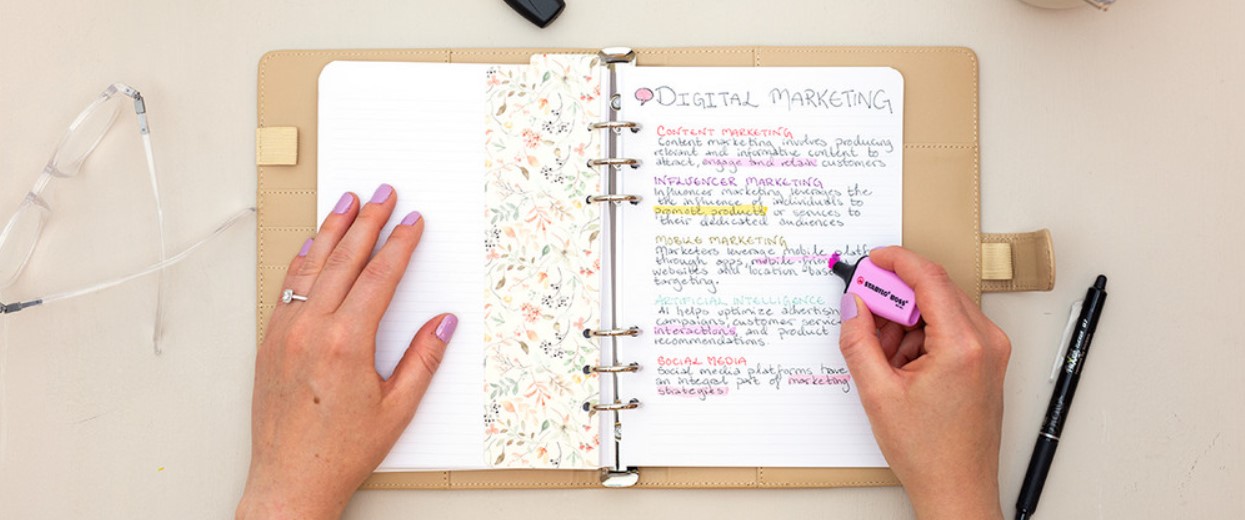 DIGITAL MARKETING
CONTENT MARKETING
Content marketing involves producing
relevant and informative content to
attract, engage and retain customers
INFLUENCER MARKETING
Influencer marketing leverages the
the influence of individuals to
promote products or services to
their dedicated audiences
MOBILE MARKETING
Marketers leverage mobile platf
through apps, mobile-frien
websites and location-base
targeting.
ARTIFICIAL INTELLIGENCE
AI helps optimize advertisin
campaigns, customer servic
interactions, and product
recommendations.
SOCIAL MEDIA
Social media platforms have
an integral part of marketing
strategies
STABILO BOSS